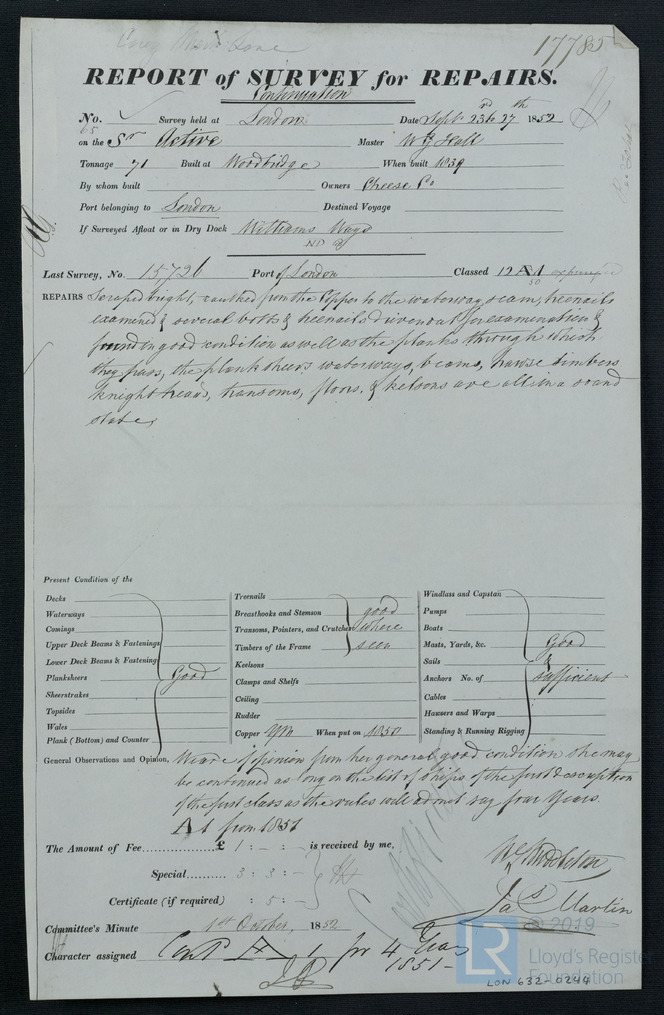 17785
REPORT of SURVEY for REPAIRS.
Continuation
No. 65 Survey held at London Date Sept 23rd & 27th 1852
on the Sr Active Master W J Hall
Tonnage 71 Built at Woodbridge When built 1839
By whom built Owners Cheese Co
Port belonging to London Destined Voyage
If Surveyed Afloat or in Dry Dock Williams Ways
ND
Last Survey, No. 15726 Port of London Classed 12 A 1 expired
50
REPAIRS Scraped bright, caulked from the Copper to the waterway seam, treenails
examined & several bolts & treenails driven out for examination &
found in good condition as well as the planks through which
they pass, the planksheers waterways, beams, hawse timbers
knightheads, transoms, floors, & kelsons are all in a sound
state
Present Condition of the
Decks
Waterways
Comings
Upper Deck Beams & Fastenings
Lower Deck Beams & Fastening
Planksheers Good
Sheerstrakes
Topsides
Wales
Plank (Bottom) and Counter
Treenails
Breasthooks and Stemson good
Transoms, Pointers, and Crutches where
Timbers of the Frame seen
Keelsons
Clamps and Shelfs
Ceiling
Rudder
Copper YM When put on 1850
Windlass and Capstan
Pumps
Boats
Masts, Yards, &c. Good
Sails &
Anchors No. of sufficient
Cables
Hawsers and Warps
Standing & Running Rigging
General Observations and Opinion, We are of opinion from her general good condition she may
be continued as long on the list of ships of the first description
of the first class as the rules will admit say four Years.
A 1 from 1851
The Amount of Fee £ 1 : - : - is received by me,
Special 3 : 3 : -
Certificate (if required) : 5 : -
Certificate
Wm Middleton
Jas Martin
Committee's Minute 1st October, 1852
Character assigned Cont A 1 for 4 Years
1851-
LR
© 2019
Lloyd's Register
Foundation
LON 632-0244